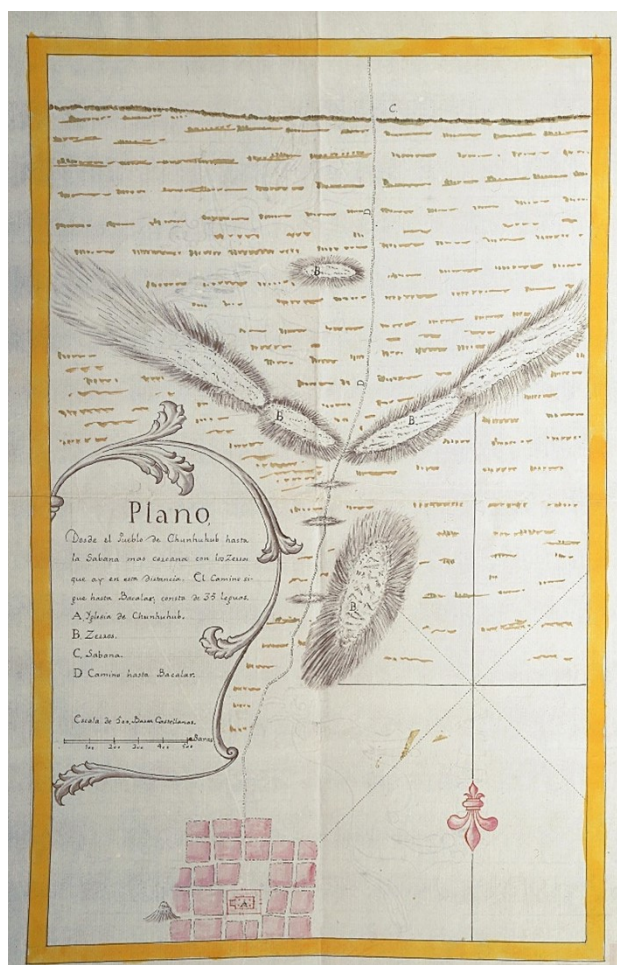 C.
D
B
D
B.
B.
Plano,
Desde el Pueblo de Chunhuhub hasta
la Sabana mas cercana con los Zerros
que ay en esta distancia. El Camino si-
gue hasta Bacalar, consta de 35 leguas.
A, Yglesia de Chunhuhub.
B, Zerros.
C, Sabana.
D Camino hasta Bacalar.
B.
Escala de 500, Baras Castellanas.
100 200 300 400 500 Baras
A.